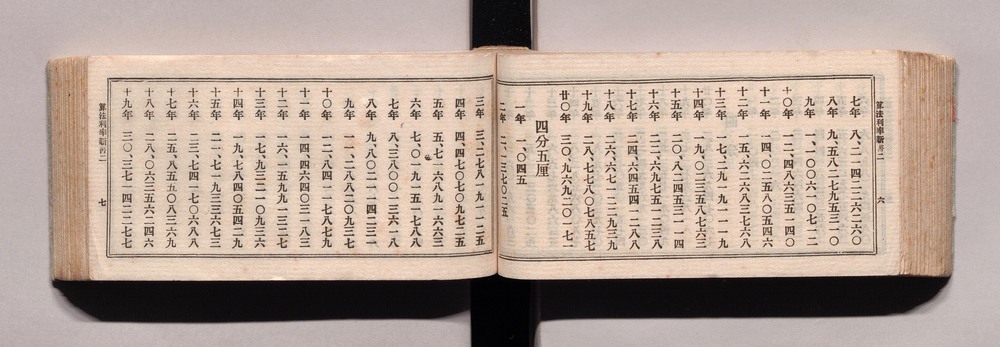 算法利率新書二
六
七年 八、二一四二二六二六〇
八年 九、五八二七九五三一〇
九年 一一、〇〇六一〇七一二
十〇年 一二、四八六三五一四〇
十一年 一四、〇二五八〇五四六
十二年 一五、六二六八三七六八
十三年 一七、二九一九一一一九
十四年 一九、〇二三五八七六三
十五年 二〇、八二四五三一一四
十六年 二二、六九七五一二三八
十七年 二四、六四五四一二八八
十八年 二六、六七一二二九三九
十九年 二八、七七八〇七八五七
廿〇年 三〇、九六九二〇一七一
四分五厘
一年 一、〇四五
二年 二、一三七〇二五
三年 三、二七八一九一一二五
四年 四、四七〇七〇九七二五
五年 五、七一六八九一六六三
六年 七、〇一九一五一七八八
七年 八、三八〇〇一三六一八
八年 九、八〇二一一四二三一
九年 一一、二八八二〇九三七
十〇年 一二、八四一一七八七九
十一年 一四、四六四〇三一八三
十二年 一六、一五九九一三二七
十三年 一七、九三二一〇九三六
十四年 一九、七八四〇五四二九
十五年 二一、七一九三三六七三
十六年 二三、七四一七〇六八八
十七年 二五、八五五〇八三六九
十八年 二八、〇六三五六二四六
十九年 三〇、三七一四二二七七
算法利率新書二
七